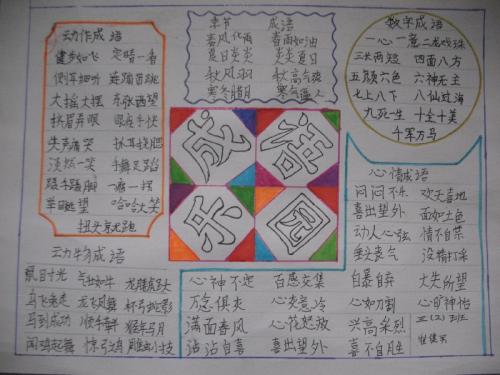 动作成语
健步如飞 定睛一看
侧耳细听 连蹦带跳
大摇大摆 东张西望
挤眉弄眼 眼疾手快
失声痛哭 抓耳挠腮
淡然一笑 手舞足蹈
蹑手蹑脚 一瘸一拐
举目眺望 哈哈大笑
扭头就跑
季节 成语
春风化雨 春雨如油
夏日炎炎 炎炎夏日
秋风 秋高气爽
寒冬腊月 寒气逼人
数字成语
一心一意 二龙戏珠
三长两短 四面八方
五颜六色 六神无主
七上八下 八仙过海
九死一生 十全十美
千军万马
成语
乐园
心情成语
闷闷不乐 欢天喜地
喜出望外 面如土色
动人心弦 情不自禁
垂头丧气 没精打采
自暴自弃 大失所望
心如刀割 心旷神怡
兴高采烈
喜不自胜
心神不定 百感交集
万念俱灰 心灰意冷
满面春风 心花怒放
沾沾自喜 喜出望外
动物成语
鼠目寸光 气壮如牛 龙腾虎跃
马飞 龙飞凤舞 杯弓蛇影
马到成功 顺手牵羊 猴年马月
闻鸡起舞 惊弓之鸟 雕虫小技
三(2)班